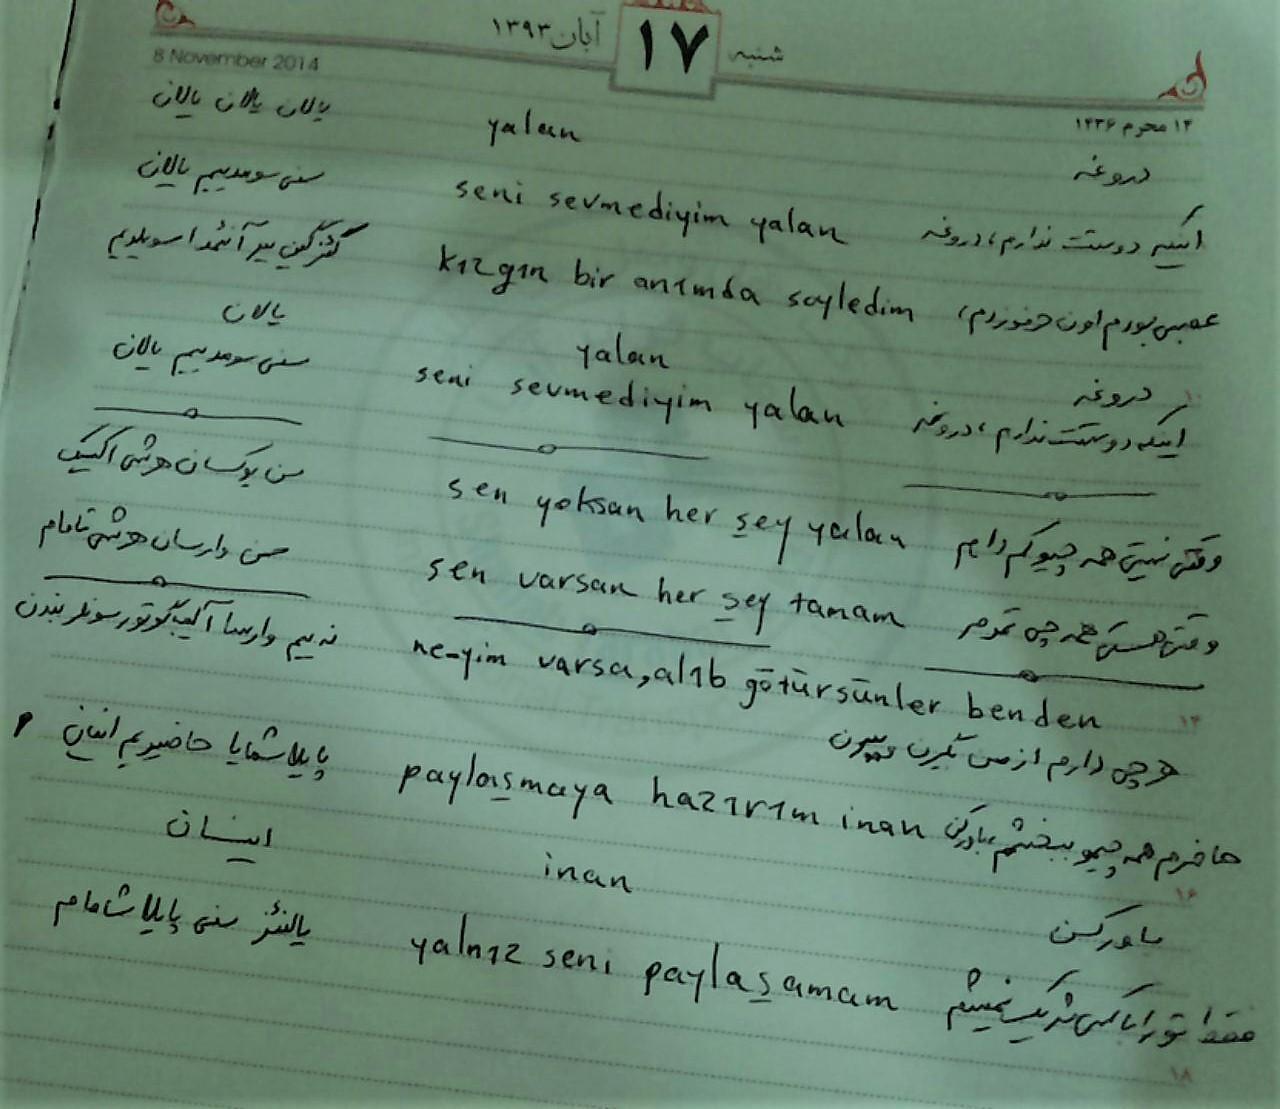 شنبه ۱۷ آبان ۱۳۹۳
8 November 2014
۱۴ محرم ۱۴۳۶
یالان یالان یالان yalan دروغه
سنی سومدییم یالان seni sevmediyim yalan اینکه دوستت ندارم، دروغه
بیر آنئمدا سویلدیم kızgın bir anımda soyledim عصبی بودم اون حرفو زدم،
یالان yalan دروغه
سنی سومدییم یالان seni sevmediyim yalan اینکه دوستت ندارم، دروغه
سن یوکسان هرشی sen yoksan her şey yalan وقتی نیستی همه چیو کم دارم
سن وارسان هرشی تامام sen varsan her şey tamam وقتی هستی همه چی تمومه
نه ییم وارسا آلیب گوتورسونلر بندن ne-yim varsa, alıb götürsünler benden
هرچی دارم از من بگیرن ببرن
پایلاشمایا حاضیریم اینان paylaışmaya hazırım inan حاضرم همه چیمو ببخشم، باور کن
اینان inan باور کن
یالنئز سنی پایلاشامام yalnız seni paylaşamam فقط تو را با کسی شریک نمیشم
۱۶
۱۸